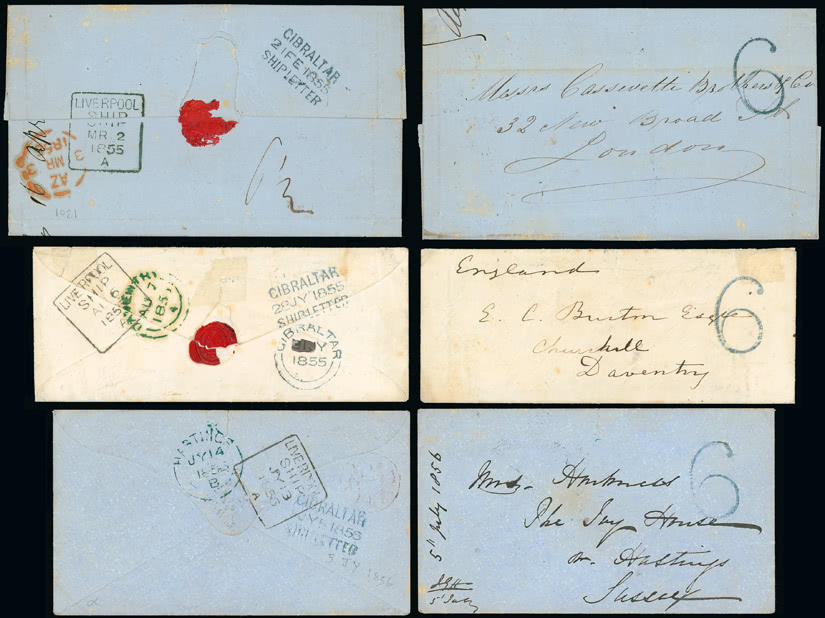 GIBRALTAR
21 FE 1855
SHIP LETTER
LIVERPOOL
SHIP
MR 2
1855
A
AZ
3
MR
185
1621
6
Messrs Cassevetti Brothers & Co
32 New Broad St
London
LIVERPOOL
SHIP
AU 6
185
DAVENTRY
AU 7
185
A
GIBRALTAR
28 JY 1855
SHIP LETTER
GIBRALTAR
1855
6
England
E. C. Burton Esqre
Churchill
Daventry
HASTINGS
JY 14
185
B
LIVERPOOL
SHIP
JY 13
A
GIBRALTAR
SHIP LETTER
5 JY 1856
6
5th July 1856
Mrs Harkness
The Ivy House
nr Hastings
Sussex